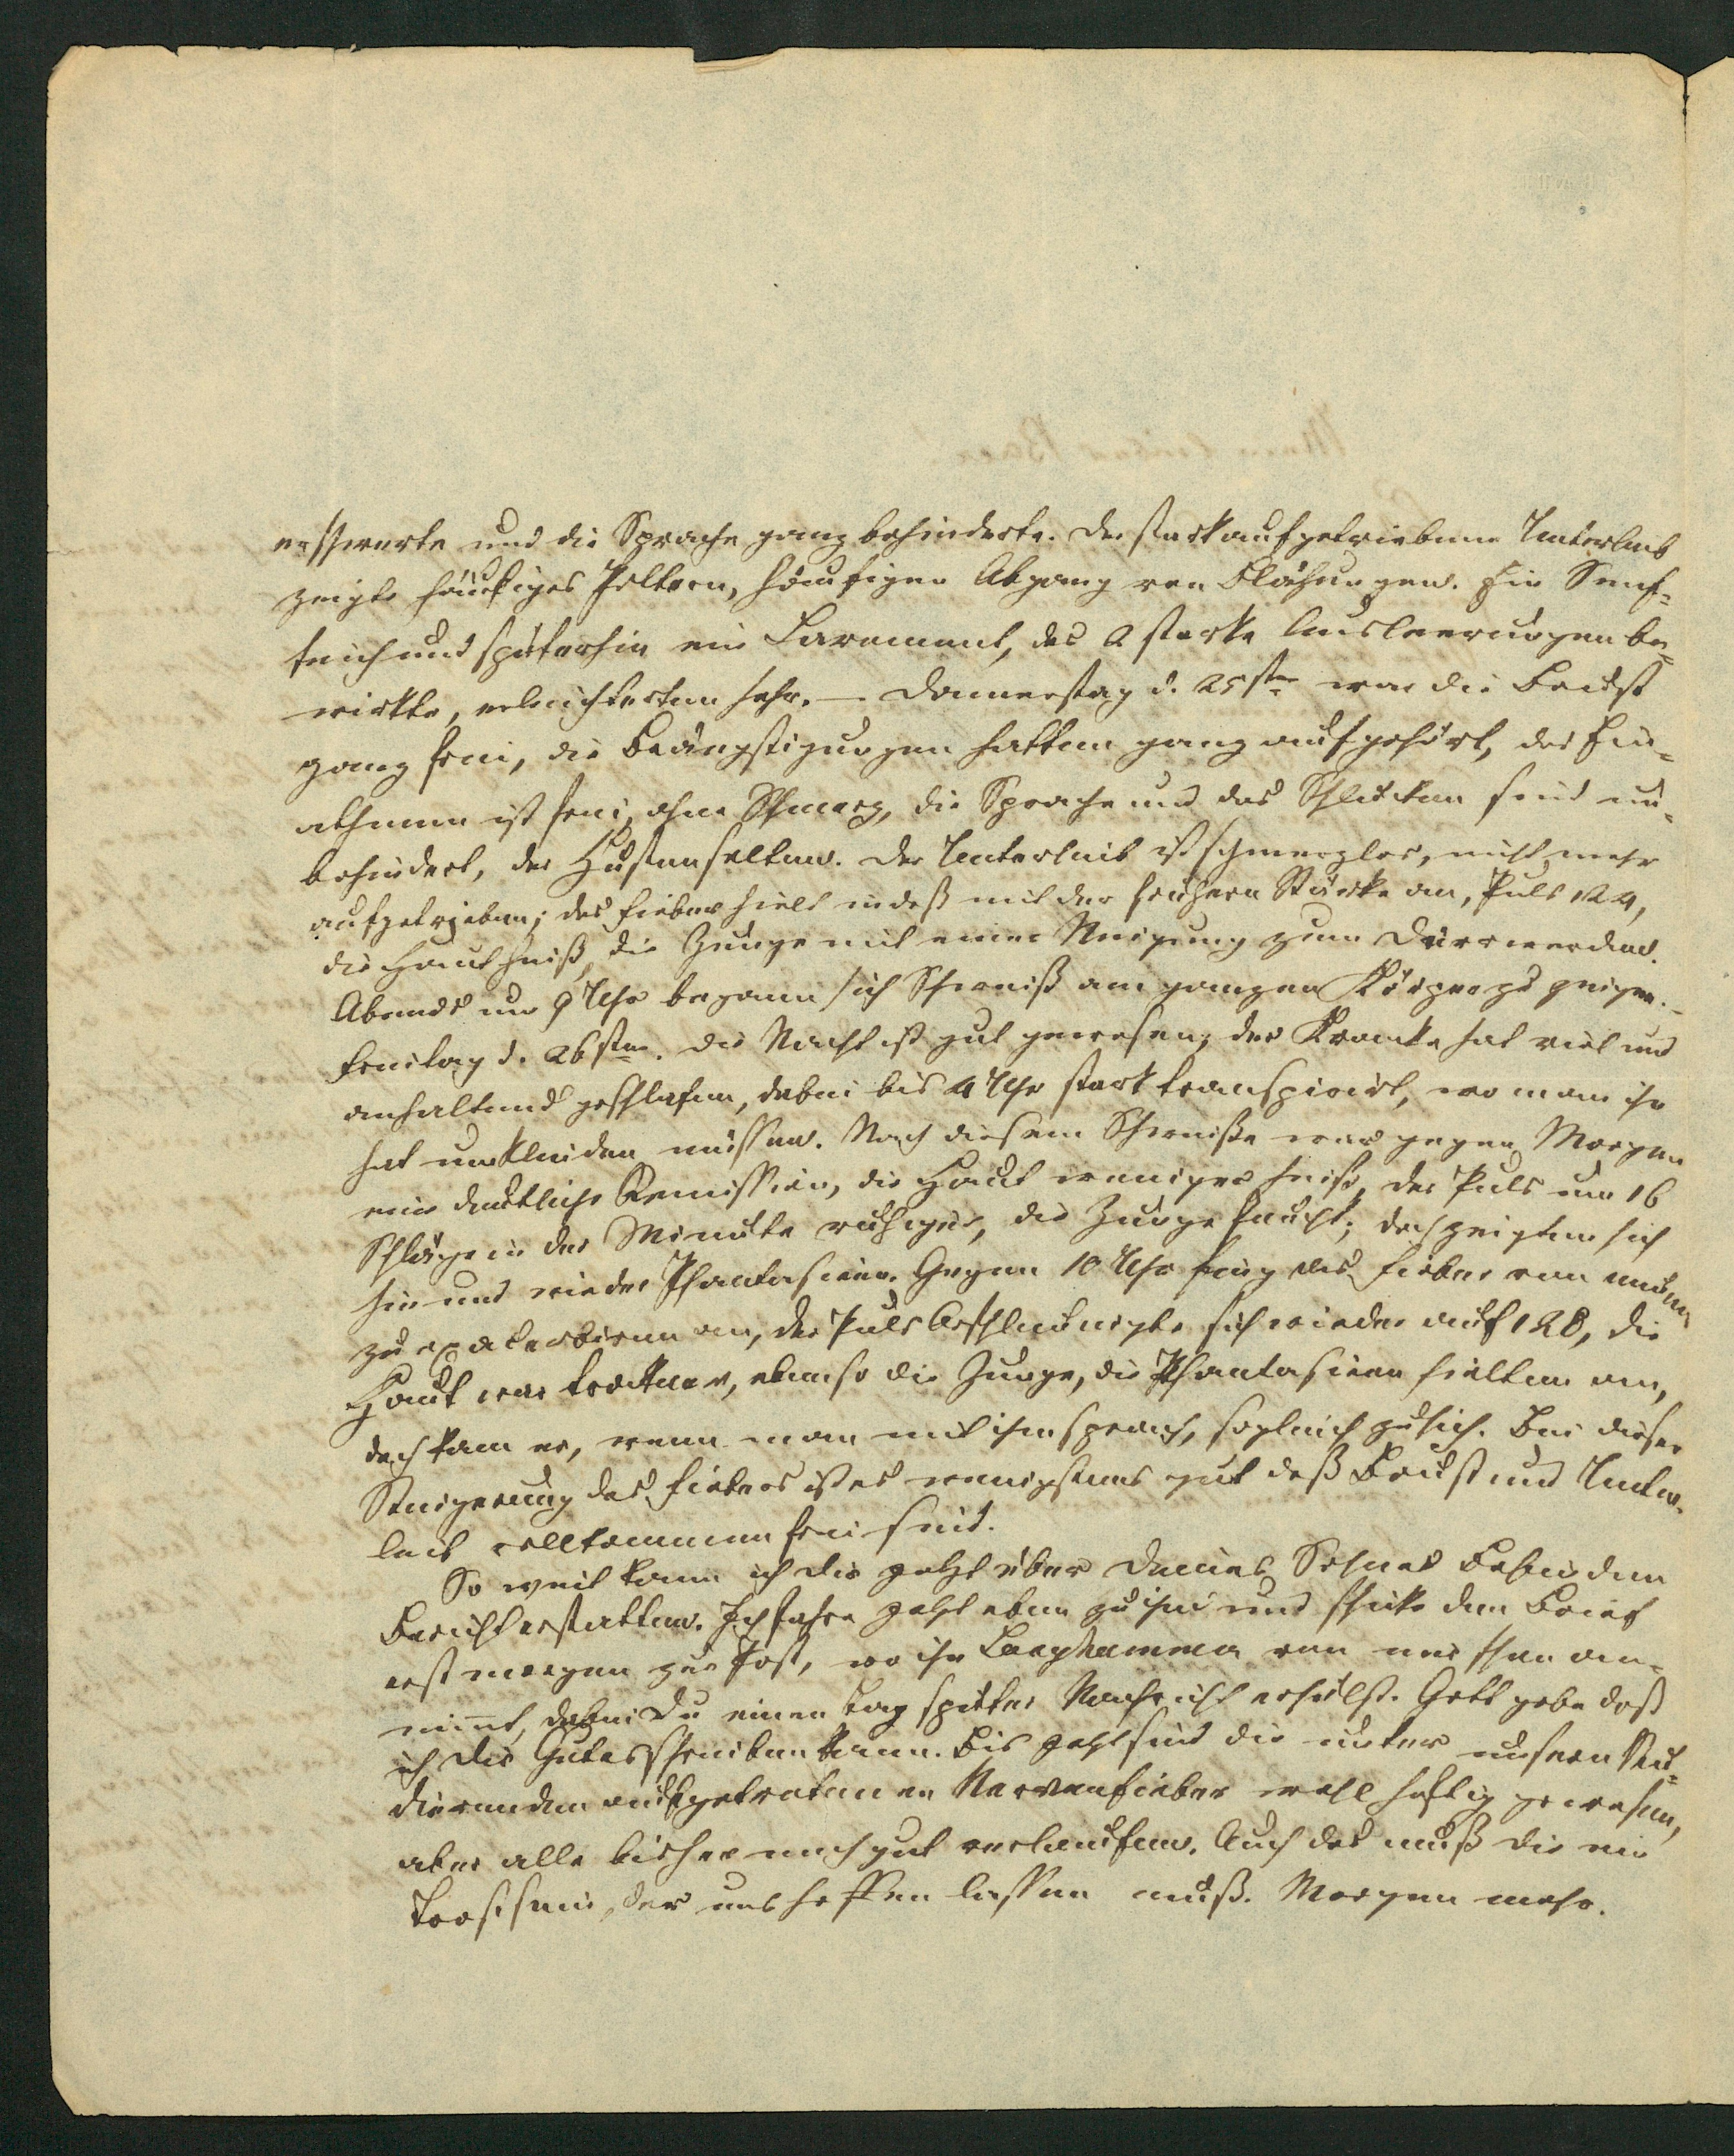 erschwerte und die Sprache ganz behinderte. Der stark aufgetriebene Unterleib
zeigte häufiges Poltern, häufigen Abgang von Blähungen. Ein Senf-
teich und späterhin ein Lavement, das 2 starke Ausleerungen be-
wirkte, erleichterten sehr. – Donnerstag d. 25sten war die Brust
ganz frei, die Beängstigungen hatten ganz aufgehört, das Ein-
athmen ist frei, ohne Schmerz, die Sprache und das Schlucken sind un-
behindert, der Husten selten. Der Unterleib ist schmerzlos, nicht mehr
aufgetrieben; das Fieber hielt indeß mit der frühern Stärke an, Puls 124,
die Haut heiß, die Zunge mit einer Neigung zum Dürrwerden.
Abends um 9 Uhr begann sich Schweiß am ganzen Körper zu zeigen. –
Freitag d. 26sten. Die Nacht ist gut gewesen, der Kranke hat viel und
anhaltend geschlafen, dabei bis 4 Uhr stark transpirirt, wo man ihn
hat umkleiden müssen. Nach diesem Schweiße war gegen Morgen
eine deutliche Remission, die Haut weniger heiß, der Puls um 16
Schläge in der Minute ruhiger, die Zunge feucht; doch zeigten sich
hin und wieder Phantasieen. Gegen 10 Uhr fing das Fieber von neuem
zu exacerbiren an, der Puls beschleunigte sich wieder auf 128, die
Haut war trockner, ebenso die Zunge, die Phantasieen hielten an,
doch kam er, wenn man mit ihm sprach, sogleich zu sich. Bei dieser
Steigerung des Fiebers ist es wenigstens gut daß Brust und Unter-
leib vollkommen frei sind.
So weit kann ich Dir jetzt über Deines Sohnes Befinden
Bericht erstatten. Ich fahre jetzt eben zu ihm und schicke den Brief
erst morgen zur Post, wo ihn von uns schon an-
nimt, dabei Du einen Tag später Nachricht erhälst. Gott gebe daß
ich Dir Gutes schreiben kann. Bis jetzt sind die unter unsern Stu-
dierenden aufgetretenen Nervenfieber wohl heftig gewesen,
aber alle bisher noch gut verlaufen. Auch das muß Dir ein
Trost sein, der uns hoffen lassen muß. Morgen mehr.